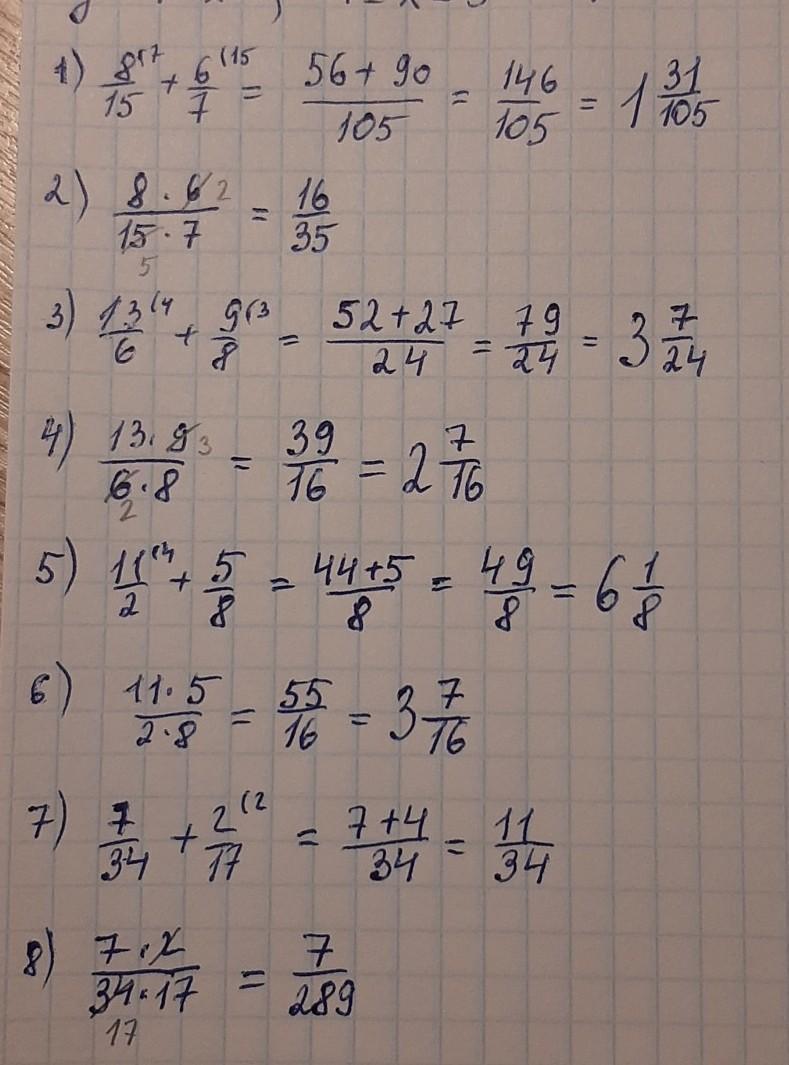 1) 8/15 (7 + 6/7 (15 = 56 + 90/105 = 146/105 = 1 31/105
2) 8 · 6 2/15 · 7 5 = 16/35
3) 13/6 (4 + 9/8 (3 = 52 + 27/24 = 79/24 = 3 7/24
4) 13 · 9 3/6 · 8 2 = 39/16 = 2 7/16
5) 11/2 (4 + 5/8 = 44 + 5/8 = 49/8 = 6 1/8
6) 11 · 5/2 · 8 = 55/16 = 3 7/16
7) 7/34 + 2/17 (2 = 7 + 4/34 = 11/34
8) 7 · 2/34 · 17 17 = 7/289